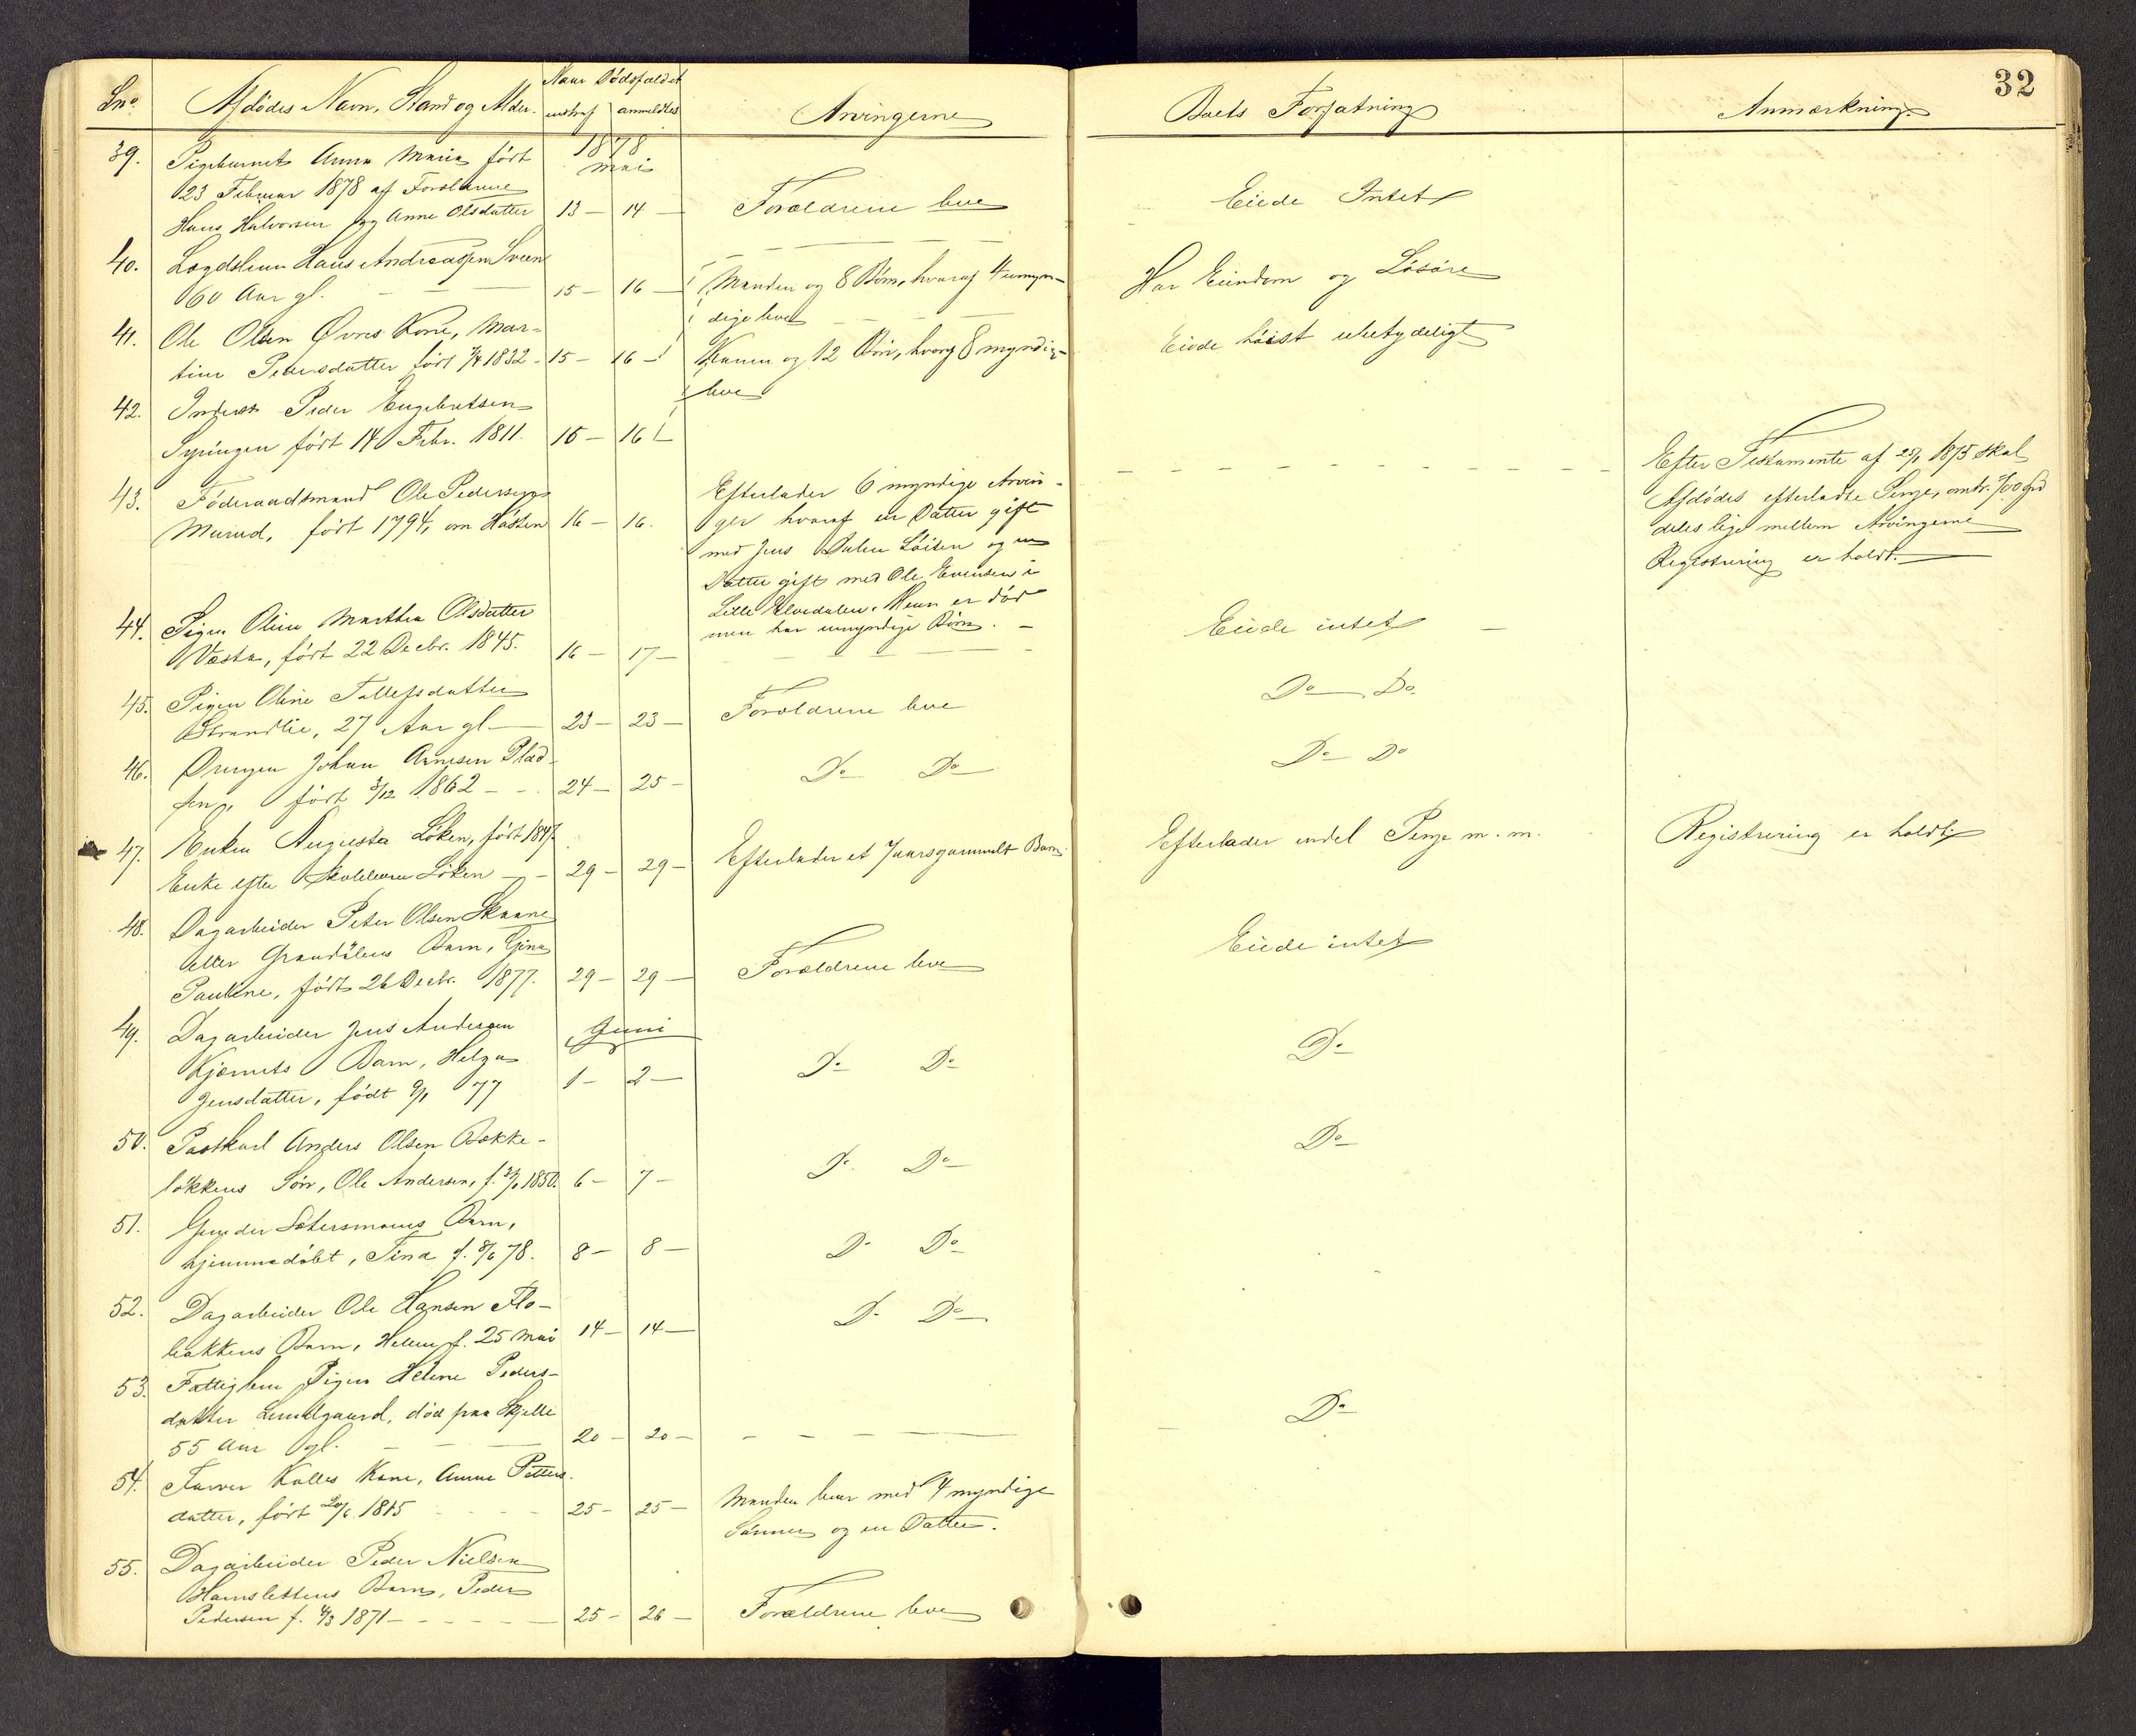 32
Lno. Afdødes Navn, Stand og Alder. Naar Dødsfaldet
indtraf anmeldtes Arvingerne Boets Forfatning Anmærkning
1878
Mai
39. Pigebarnet Anna Maria født
23 Februar 1878 af Forældrene
Hans Halvorsen og Anne Olsdatter 13 — 14 — Forældrene leve Eiede Intet
40. Lægdslem Hans Andreassen Sveen
60 Aar gl. 15 — 16 — Manden og 8 Børn, hvoraf 4 umyn-
dige leve Har Eiendom og Løsøre
41. Ole Olsen Øvres Kone, Mar-
tine Pedersdatter født 1832 - 15 — 16 — Konen og 12 Børn, hvoraf 8 myndige
leve Eiede høist ubetydeligt
42. Inderst Peder Engebretsen
født 14 Febr. 1811. 15 — 16 —
43. Føderaadsmand Ole Pedersen
Murud, født 1794, om Høsten 16 — 16.
Efterlader 6 myndige Arvin-
ger hvoraf en Datter gift
med Jens Dalen Løiten og en
Datter gift med Ole Evensen i
Lille Elvedalen. Hun er død
men har umyndige Børn. —
Efter Testamente af 25/1 1875 skal
Afdødes efterladte Penge, omtr.
deles lige mellem Arvingerne
Registrering er holdt. —
44. Pigen Oline Marthea Olsdatter
Væsta, født 22 Decbr. 1845. 16 — 17 — Eiede intet —
45. Pigen Oline Tollefsdatter
Strandlie, 27 Aar gl — 23 — 23 — Forældrene leve Do — Do.
46. Drengen Johan Arnesen Plad-
sen, født 3/12 1862 - - 24 — 25 — Do Do Do Do
47. Enken Augusta Løken, født 1847.
Enke efter Skolelærer Løken — 29 — 29 — Efterlader et 7 aarsgammelt Barn Efterlader endel Penge m. m. Registrering er holdt
48. Dagarbeider Peter Olsen Skaane
eller Barn, Gina
Pauline, født 26 Decbr. 1877. 29 — 29 — Forældrene leve Eiede intet
49. Dagarbeider Jens Andersen Juni
Kjernets Barn, Helga
Jensdatter, født 9/1 77 1 — 2 — Do Do Do
50. Postkarl Anders Olsen Bække-
løkkens Søn, Ole Andersen, f. 1850. 6 — 7 — Do. Do Do
51. Gunder Sætersmoens Barn,
hjemmedøbt, Tina f. 8/6 78. 8 — 8 — Do Do
52. Dagarbeider Ole Hansen Flo-
bakkens Barn, Helene f. 25 Mai 14 — 14 — Do Do
53. Fattiglem Pigen Helene Peders-
datter Lundgaard, død paa Skjelle
55 Aar gl. 20 — 20 — Do
54. Farver Kolles Kone, Anne Petters-
datter, født 20/6 1815 25 — 25 — Manden lever med 4 myndige
Sønner og en Datter.
55. Dagarbeider Peder Nielsen
Hamslettens Barn, Peder
Pedersen f. 4/3 1871 - - - 25 — 26 — Forældrene leve